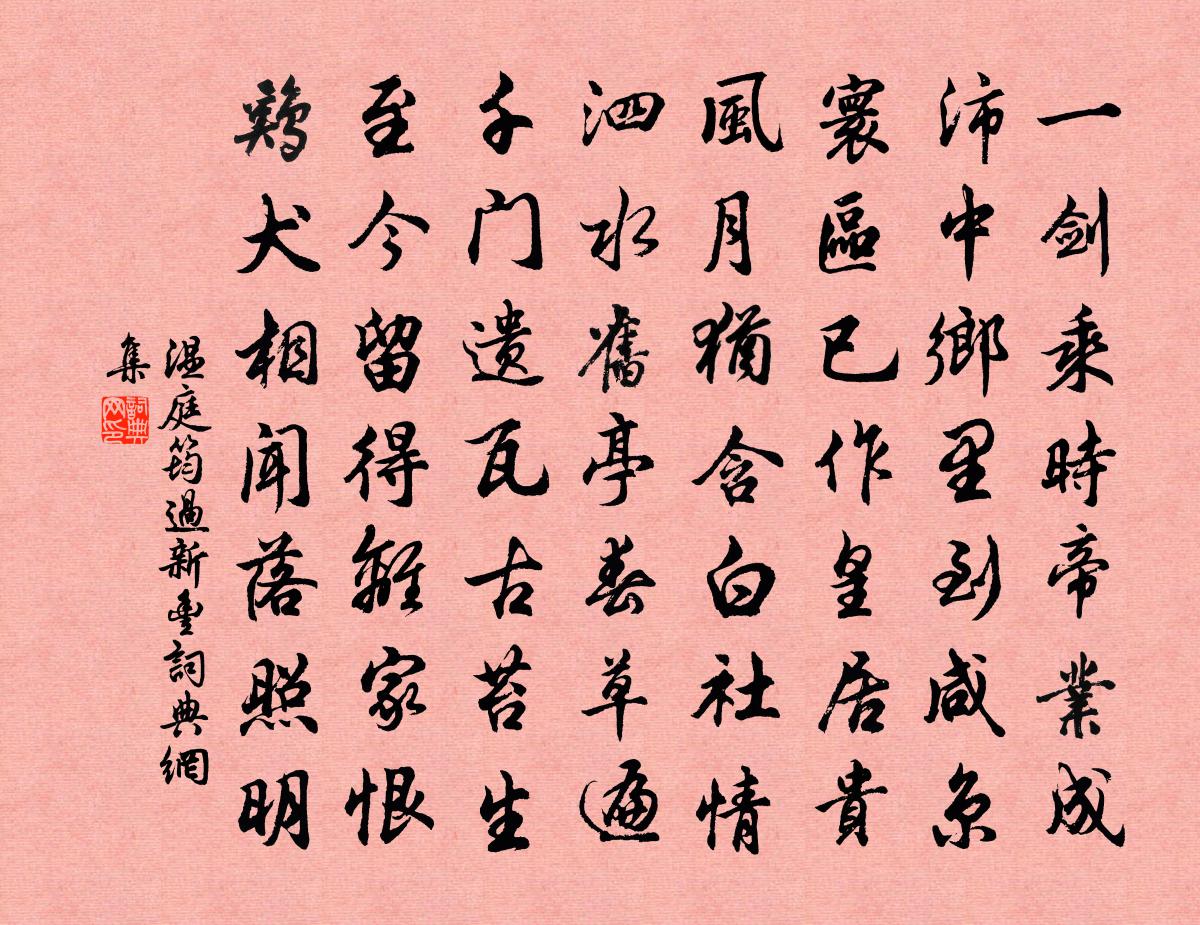 一剑乘時帝業成
沛中鄉里到咸京
寰區已作皇居貴
風月猶含白社情
泗水舊亭春草遍
千门遗瓦古苔生
至今留得離家恨
鷄犬相闻落照明
温庭筠過新豐詞典網
集
詞典
网印